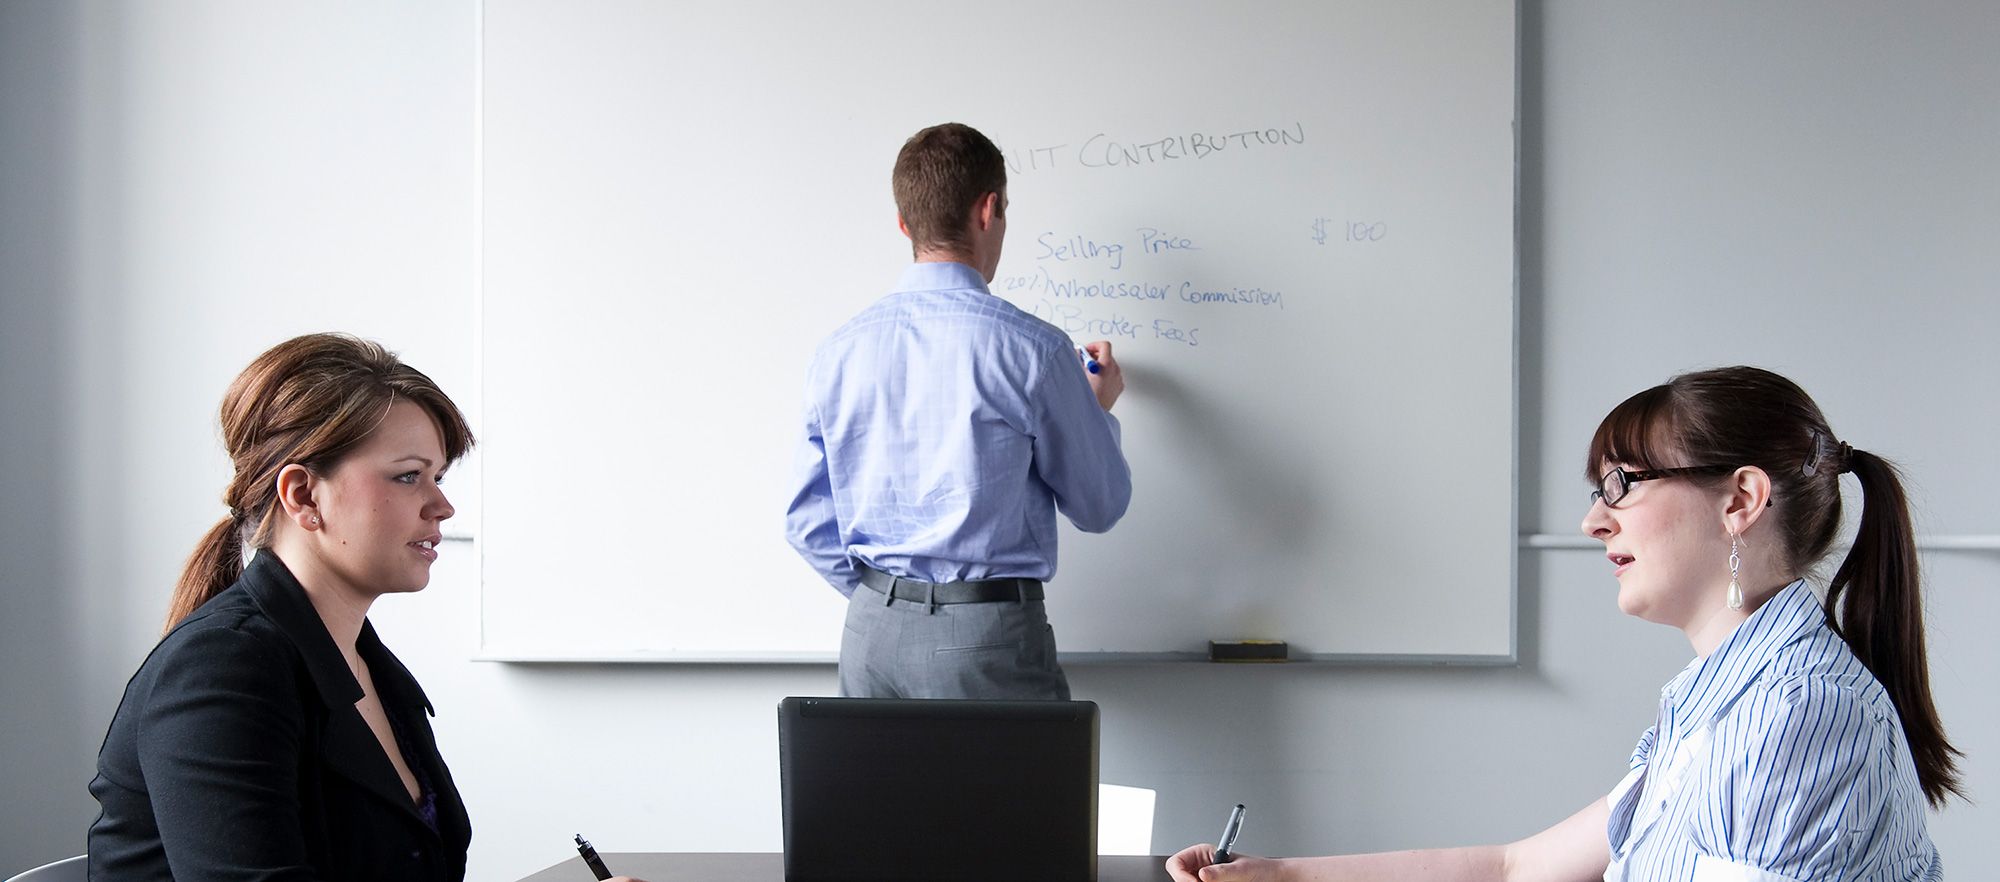 NIT CONTRIBUTION
Selling Price $ 100
(20%) Wholesaler Commission
) Broker Fees